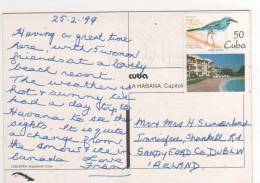 25-2-'99
Having a great time
here, with 5 women
friends at a lovely
beach resort
The weather is
hot & sunny, we
had a day trip to
Havana to see the
sights. It is quite
a change from
the snow & ice in
Canada. Love
50
Cuba
cuba
LA HABANA, Capitol
Mr & Mrs H Sunderland
Rd
SANDYFORD Co DUBLIN
IRELAND.